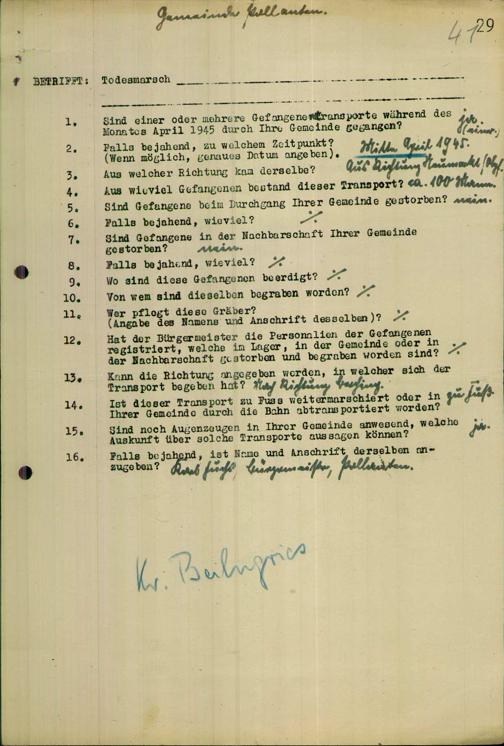 Gemeinde Pollanten.
41 29
BETRIFFT: Todesmarsch
1. Sind einer oder mehrere Gefangenentransporte während des ja.
Monates April 1945 durch Ihre Gemeinde gegangen? (einer.)
2. Falls bejahend, zu welchem Zeitpunkt? Mitte April 1945.
(Wenn möglich, genaues Datum angeben).
3. Aus welcher Richtung kam derselbe? Aus Richtung Neumarkt/Opf.
4. Aus wieviel Gefangenen bestand dieser Transport? ca. 100 Mann.
5. Sind Gefangene beim Durchgang Ihrer Gemeinde gestorben? nein.
6. Falls bejahend, wieviel? ⁒
7. Sind Gefangene in der Nachbarschaft Ihrer Gemeinde
gestorben? nein.
8. Falls bejahend, wieviel? ⁒
9. Wo sind diese Gefangenen beerdigt? ⁒
10. Von wem sind dieselben begraben worden? ⁒
11. Wer pflegt diese Gräber?
(Angabe des Namens und Anschrift desselben)? ⁒
12. Hat der Bürgermeister die Personalien der Gefangenen
registriert, welche im Lager, in der Gemeinde oder in
der Nachbarschaft gestorben und begraben worden sind? ⁒
13. Kann die Richtung angegeben werden, in welcher sich der
Transport begeben hat? Nach Richtung
14. Ist dieser Transport zu Fuss weitermarschiert oder in zu Fuß.
Ihrer Gemeinde durch die Bahn abtransportiert worden?
15. Sind noch Augenzeugen in Ihrer Gemeinde anwesend, welche ja.
Auskunft über solche Transporte aussagen können?
16. Falls bejahend, ist Name und Anschrift derselben an-
zugeben? Fuchs, Bürgermeister, Pollanten.
Kr. Beilngries